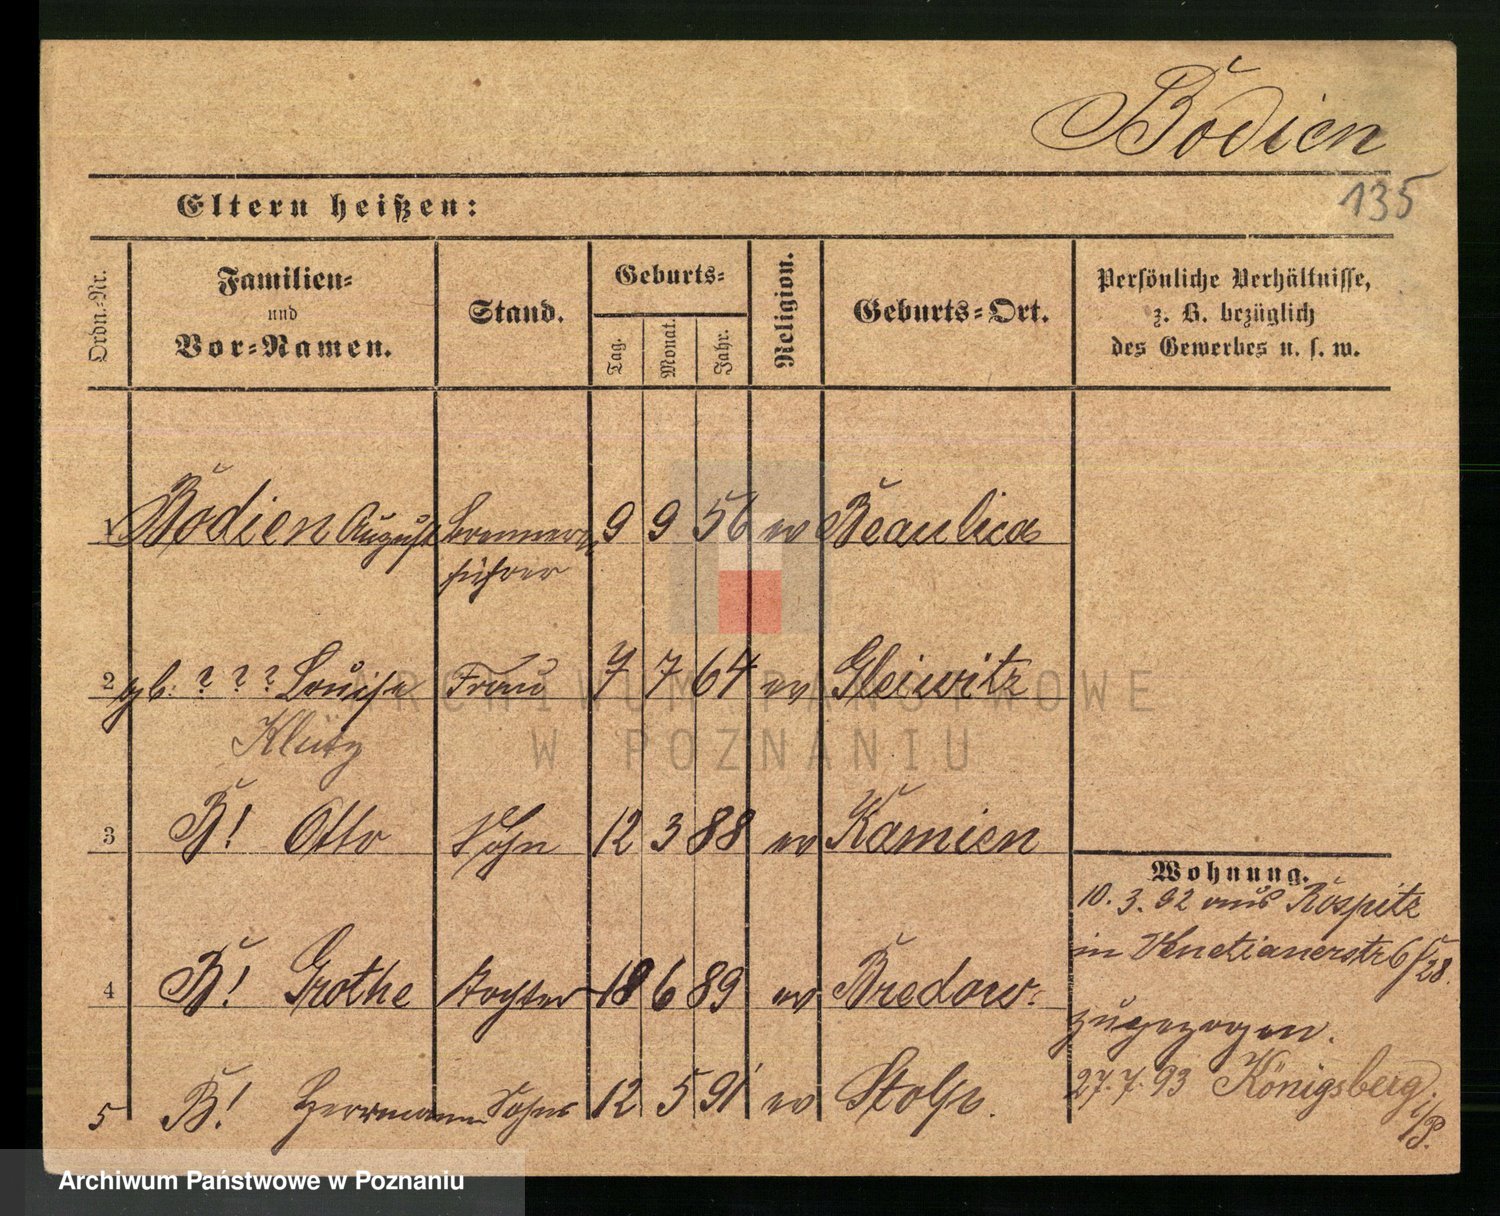 Bodien
135
Eltern heißen:
Ordn.-Nr.
Familien-
und
Vor-Namen.
Stand.
Geburts-
Tag.
Monat.
Jahr.
Religion.
Geburts-Ort.
Persönliche Verhältnisse,
z. B. bezüglich
des Gewerbes u. s. w.
1 Bodien August 9 9 56 ev
führer
2 gb. ? ? ? Louise Frau 7 7 64 ev Gleiwitz
Klütz
3 B! Otto Sohn 12 3 88 ev Kamien
4 B! Grethe Tochter 18 6 89 ev Bredow
5 B! Herrmann Sohn 12 5 91 ev Stolp.
Wohnung.
10. 3. 92 aus Rospitz
in Venetianerstr 6
28.
zugezogen.
27. 7. 93 Königsberg
i/P.
ARCHIWUM PAŃSTWOWE
W POZNANIU
Archiwum Państwowe w Poznaniu